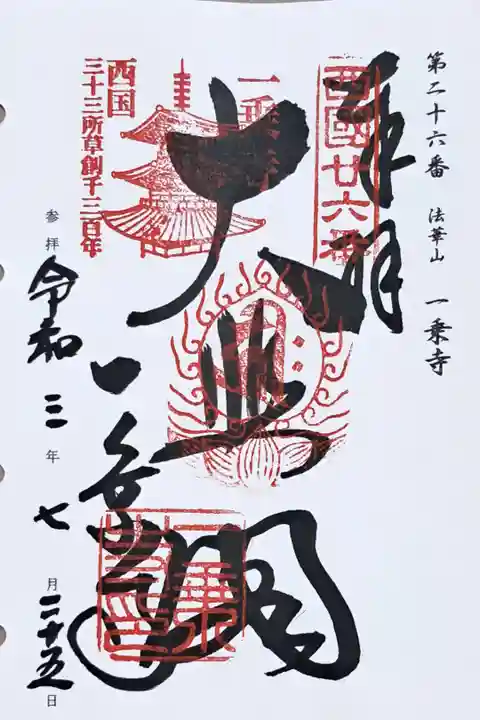 第二十六番 法華山 一乗寺
奉拝
西國廿六番
大悲閣
一乗寺
西国
三十三所草創千三百年
一乗寺
参拝 令和三年七月二十五日